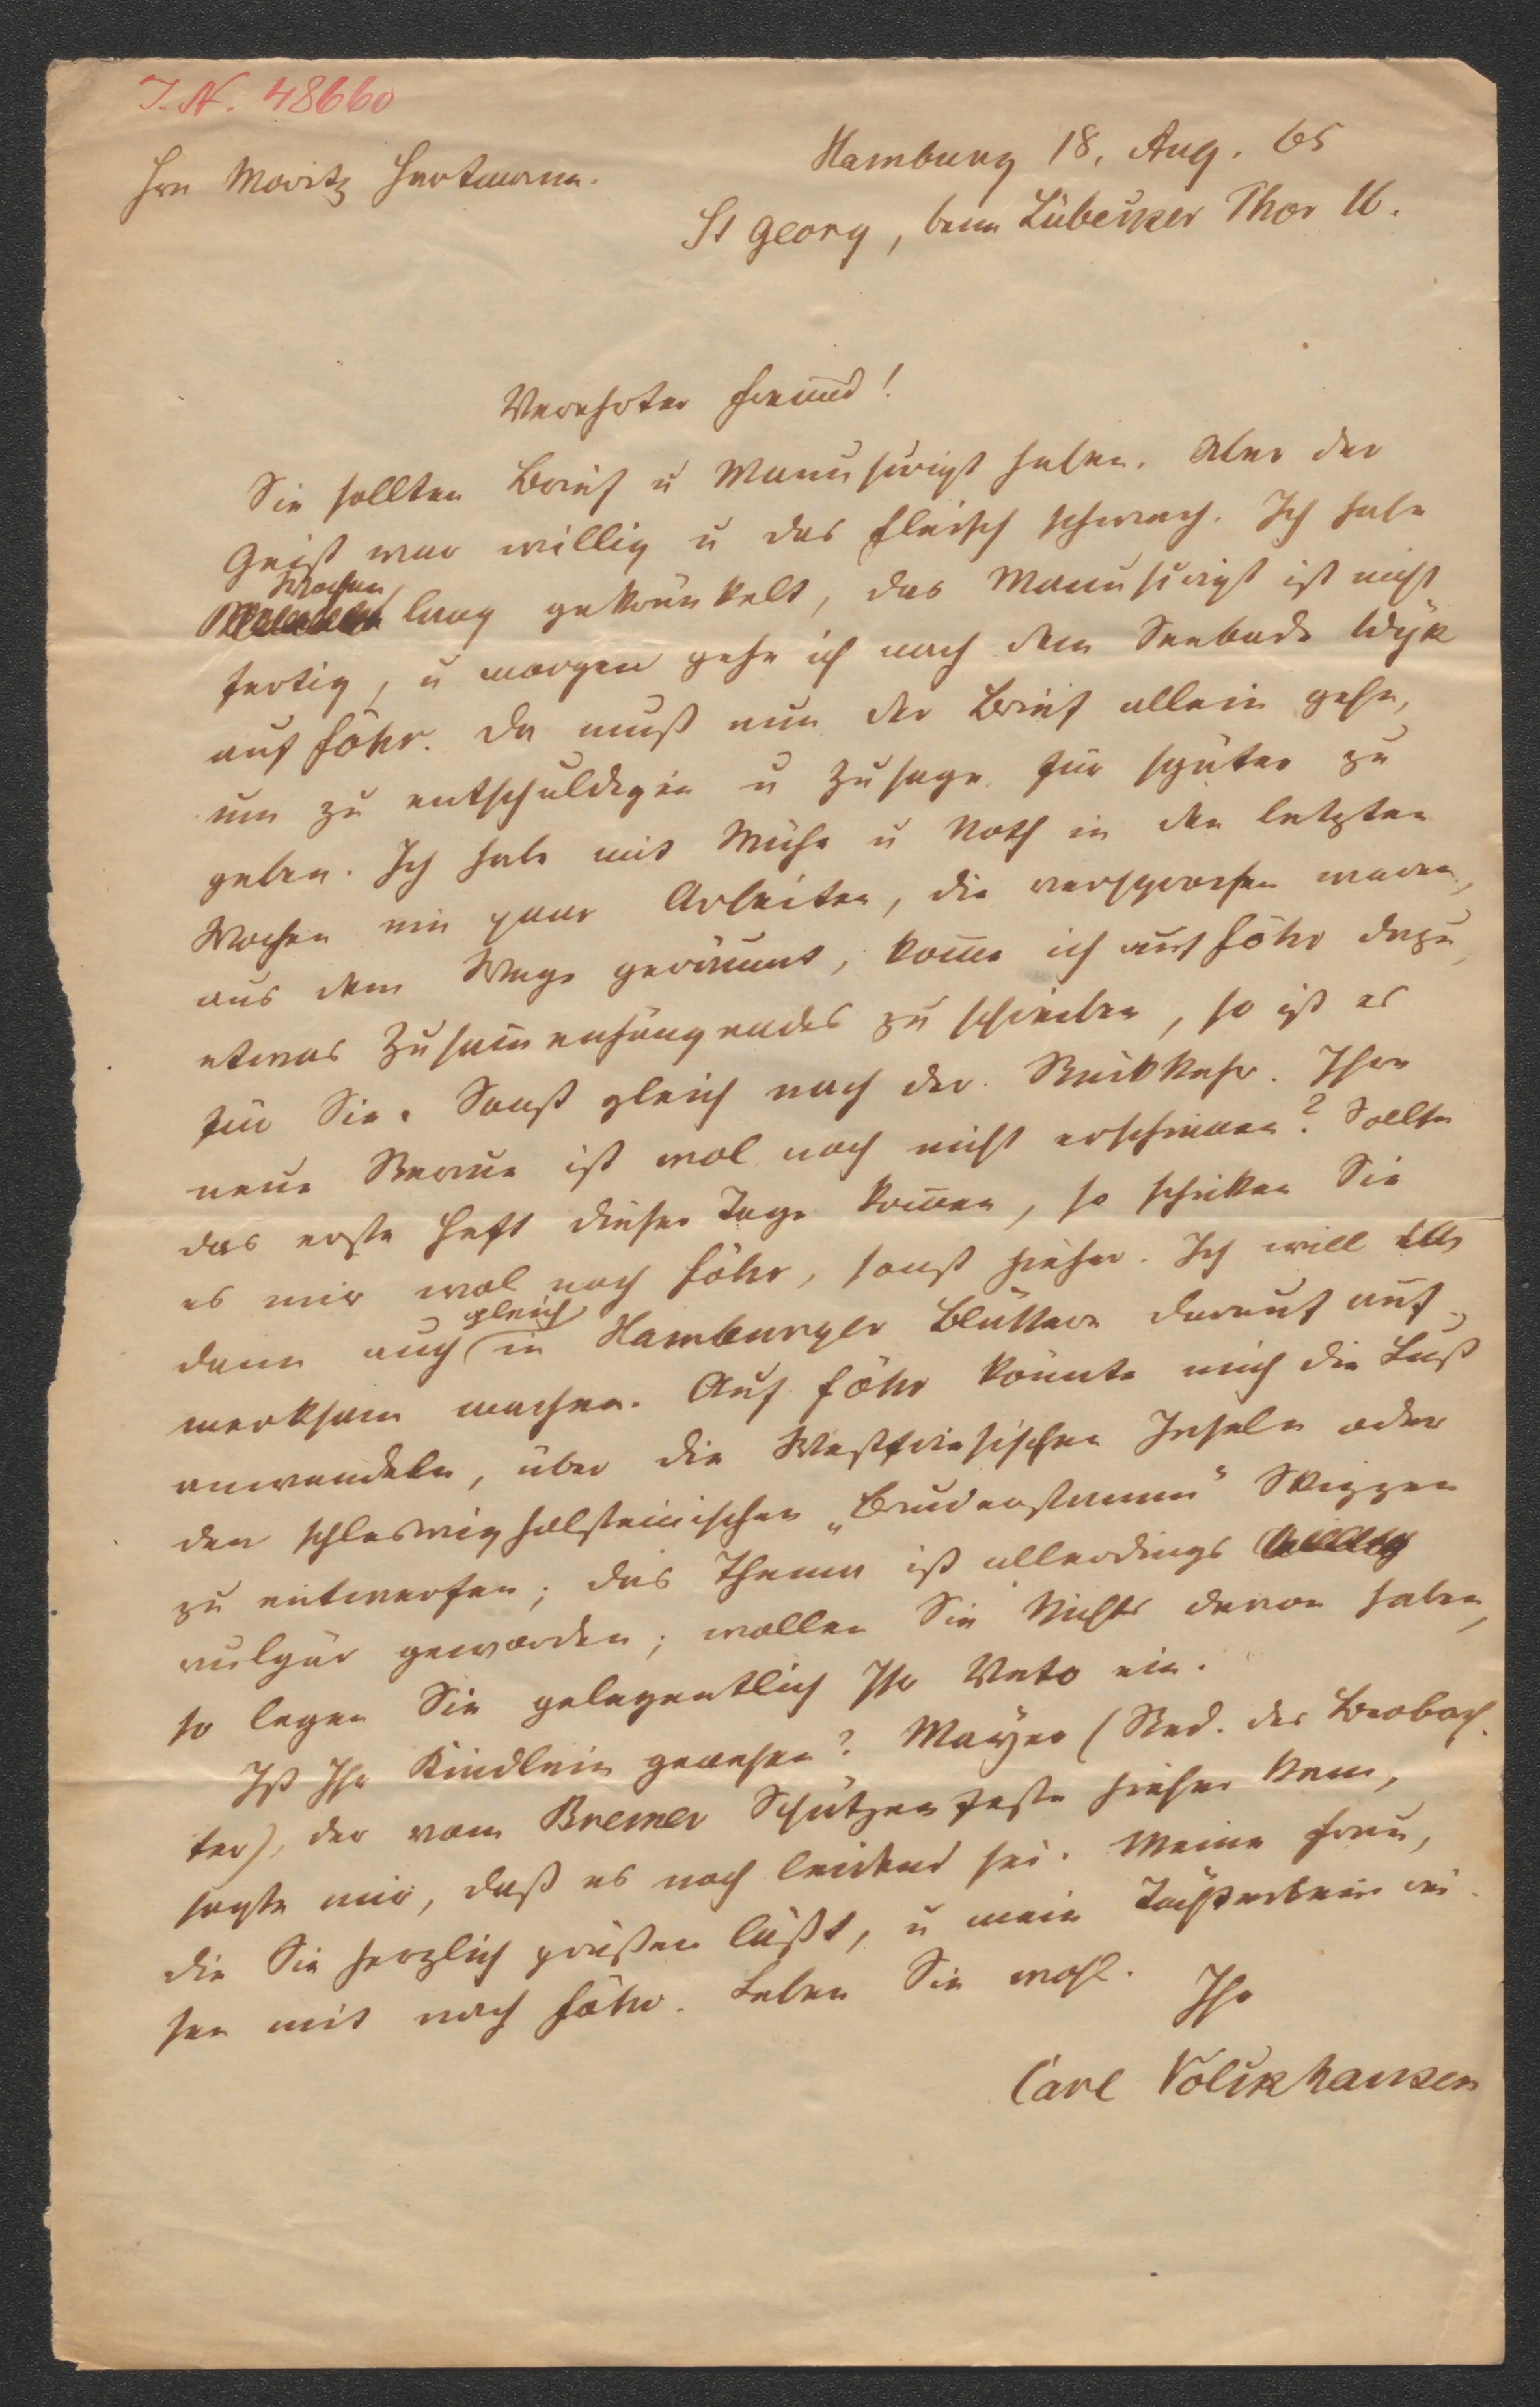 I. N. 48660
Hrn Moritz Hartmann.
Hamburg 18. Aug. 65
St Georg, beim Lübecker Thor 16.
Verehrter Freund!
Sie sollten Brief u Manuscript haben. Aber der
Geist war willig u das Fleisch schwach. Ich habe
Wochen
lang gekränkelt, das Manuscript ist nicht
fertig, u morgen gehe ich nach dem Seebade Wyk
auf Föhr. Da muß nun der Brief allein gehn,
um zu entschuldigen u Zusage für später zu
geben. Ich habe mit Mühe u Noth in den letzten
Wochen ein paar Arbeiten, die versprochen waren,
aus dem Wege geräumt, kom̄e ich auf Föhr dazu,
etwas Zusam̄enhängendes zu schreiben, so ist es
für Sie. Sonst gleich nach der Rückkehr. Ihre
neue Revue ist wol noch nicht erschienen? Sollte
das erste Heft dieser Tage kom̄en, so schicken Sie
es mir wol nach Föhr, sonst hieher. Ich will
gleich
dann auch in Hamburger Blättern darauf auf-
merksam machen. Auf Föhr könnte mich die Lust
anwandeln, über die Westfriesischen Inseln oder
den schleswigholsteinischen „Bruderstamm" Skizzen
zu entwerfen; das Thema ist allerdings
vulgär geworden; wollen Sie Nichts davon haben,
so legen Sie gelegentlich Ihr Veto ein.
Ist Ihr Kindlein genesen? Mayer (Red. des Beobach-
ter), der vom Bremer Schützenfeste hieher kam,
sagte mir, daß es noch leidend sei. Meine Frau,
die Sie herzlich grüßen läßt, u mein Töchterlein rei-
sen mit nach Föhr. Leben Sie wohl.
Ihr
Carl Volckhausen